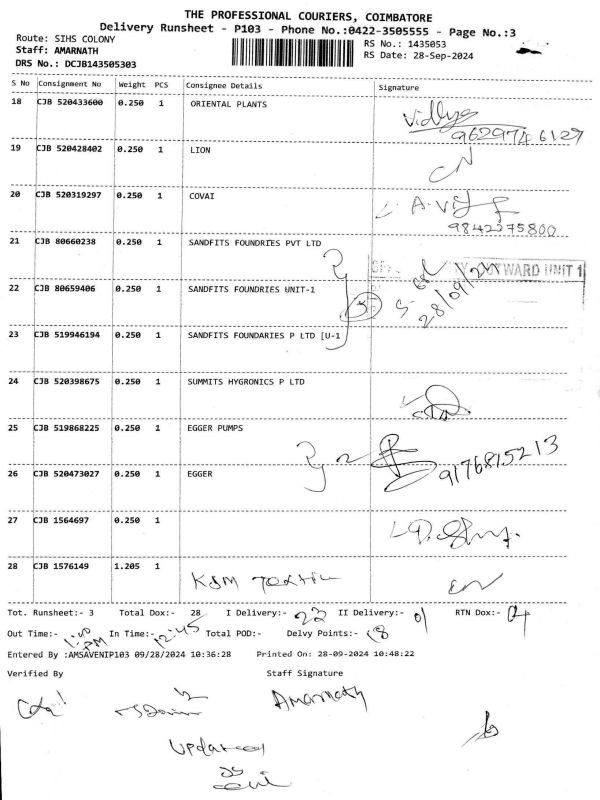 THE PROFESSIONAL COURIERS, COIMBATORE
Delivery Runsheet - P103 - Phone No.:0422-3505555 - Page No.:3
Route: SIHS COLONY
RS No.: 1435053
Staff: AMARNATH
RS Date: 28-Sep-2024
DRS No.: DCJB143505303
S No Consignment No Weight PCS Consignee Details Signature
18 CJB 520433600 0.250 1 ORIENTAL PLANTS Vidhya
9629746129
19 CJB 520428402 0.250 1 LION
20 CJB 520319297 0.250 1 COVAI
9842275800
21 CJB 80660238 0.250 1 SANDFITS FOUNDRIES PVT LTD
OUTWARD UNIT 1
22 CJB 80659406 0.250 1 SANDFITS FOUNDRIES UNIT-1
28/09/24
23 CJB 519946194 0.250 1 SANDFITS FOUNDARIES P LTD [U-1
24 CJB 520398675 0.250 1 SUMMITS HYGRONICS P LTD
25 CJB 519868225 0.250 1 EGGER PUMPS
9176815213
26 CJB 520473027 0.250 1 EGGER
27 CJB 1564697 0.250 1
28 CJB 1576149 1.205 1 KSM Textile
Tot. Runsheet:- 3 Total Dox:- 28 I Delivery:- 23 II Delivery:- 01 RTN Dox:- 04
Out Time:- 1:00 PM In Time:- 12:45 Total POD:- Delvy Points:- 18
Entered By :AMSAVENIP103 09/28/2024 10:36:28 Printed On: 28-09-2024 10:48:22
Verified By Staff Signature
Amarnath
Updated